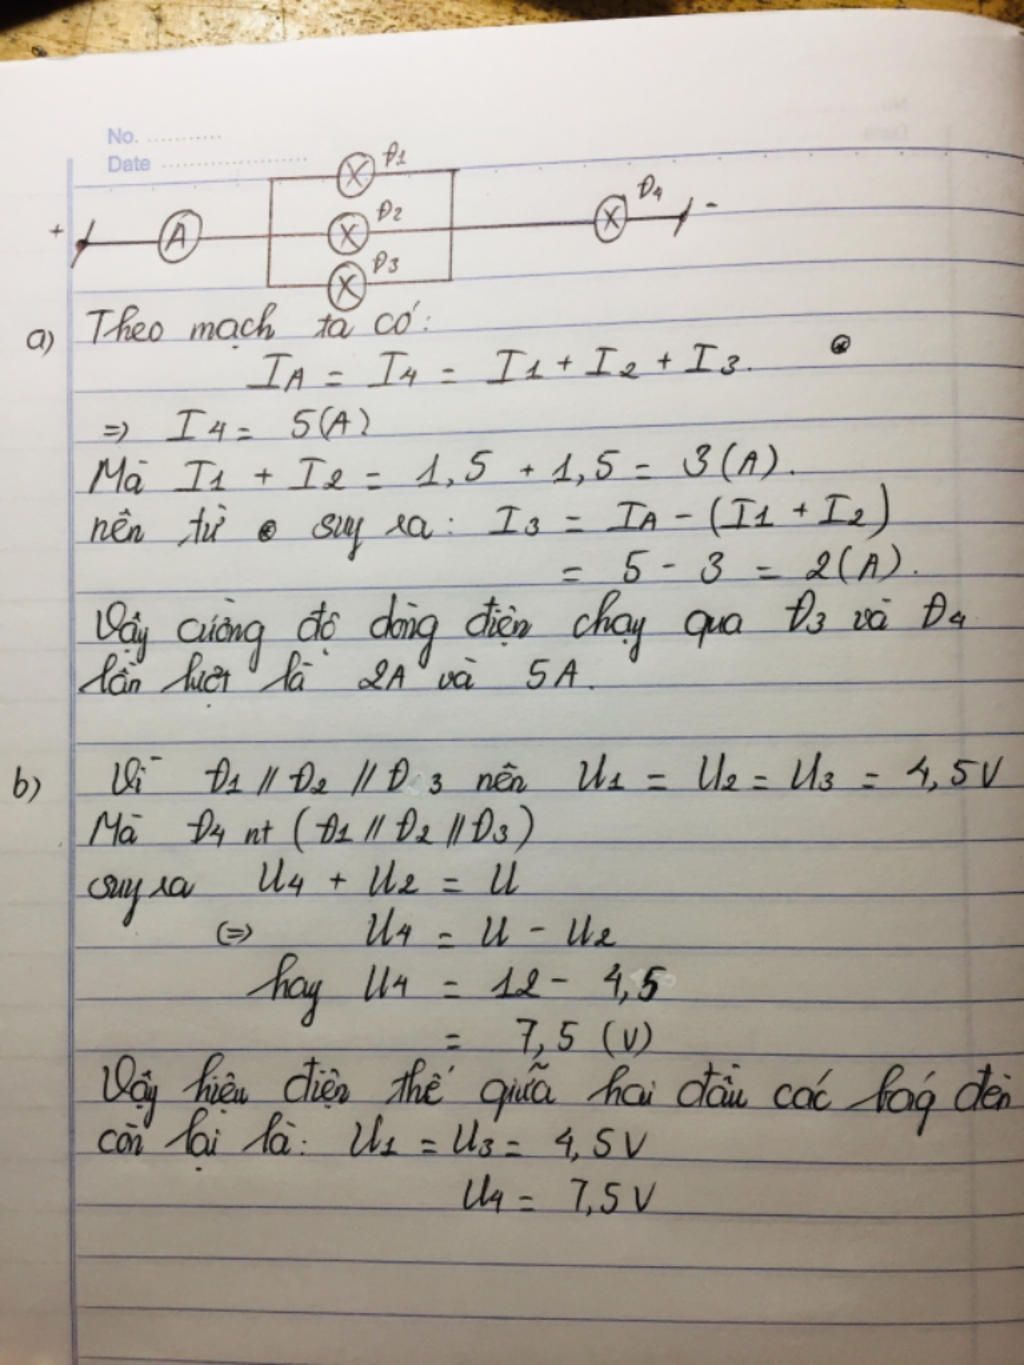 No. ...........
Date ......................
Đ1
Đ2
Đ3
Đ4
+
A
-
a) Theo mạch ta có:
IA = I4 = I1 + I2 + I3.
=> I4 = 5(A)
Mà I1 + I2 = 1,5 + 1,5 = 3(A).
nên từ suy ra: I3 = IA - (I1 + I2)
= 5 - 3 = 2(A).
Vậy cường độ dòng điện chạy qua Đ3 và Đ4
lần lượt là 2A và 5A.
b) Vì Đ1 // Đ2 // Đ3 nên U1 = U2 = U3 = 4,5V
Mà Đ4 nt (Đ1 // Đ2 // Đ3)
suy ra U4 + U2 = U
(=) U4 = U - U2
hay U4 = 12 - 4,5
= 7,5 (V)
Vậy hiệu điện thế giữa hai đầu các bóng đèn
còn lại là: U1 = U3 = 4,5V
U4 = 7,5V